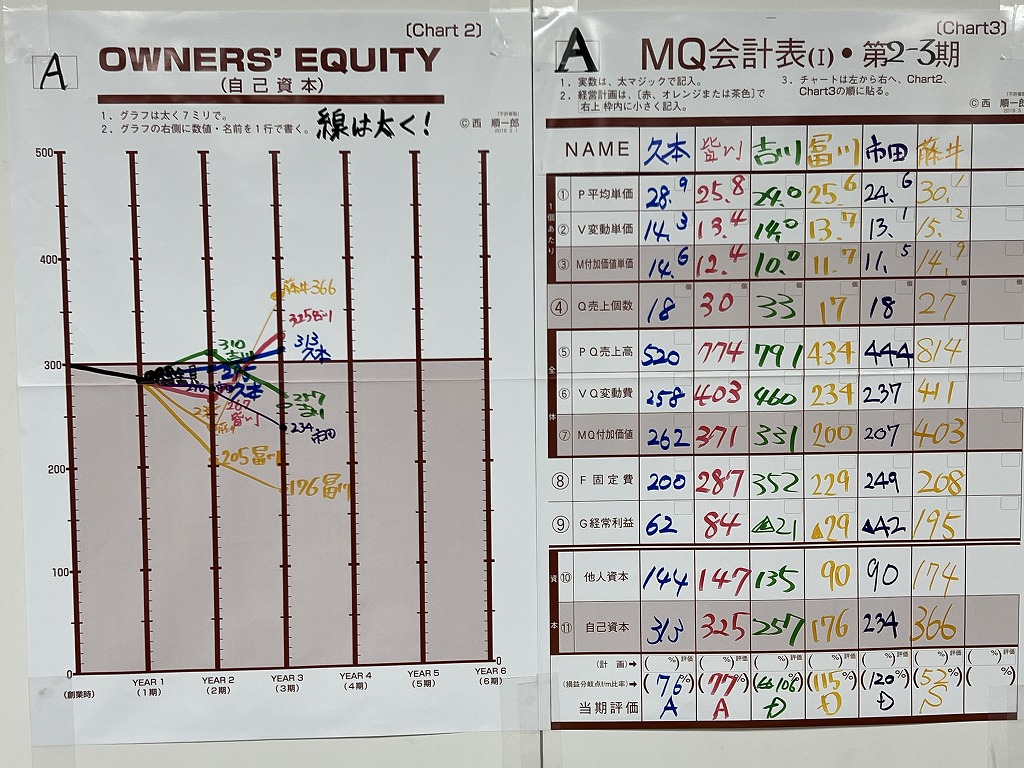 〔Chart 2〕
A
OWNERS' EQUITY
(自己資本)
1、グラフは太く7ミリで。
2、グラフの右側に数値・名前を1行で書く。
線は太く!
© 西 順一郎
500
400
300
200
100
0
0
藤井 366
325 皆川
313
久本
310
吉川
久本
267
皆川
257
吉川
234 市田
205 冨川
176 冨川
(創業時)
YEAR 1
(1期)
YEAR 2
(2期)
YEAR 3
(3期)
YEAR 4
(4期)
YEAR 5
(5期)
YEAR 6
(6期)
〔Chart3〕
A
MQ会計表(I)・第2-3期
1、実数は、太マジックで記入。
2、経営計画は、〔赤、オレンジまたは茶色〕で
右上 枠内に小さく記入。
3、チャートは左から右へ、Chart2、
Chart3の順に貼る。
© 西 順一郎
NAME 久本 皆川 吉川 冨川 市田 藤井
1個あたり
① P 平均単価 28.9 25.8 24.0 25.6 24.6 30.1
② V 変動単価 14.3 13.4 14.0 13.7 13.1 15.2
③ M付加価値単価 14.6 12.4 10.0 11.7 11.5 14.9
④ Q 売上個数 18 30 33 17 18 27
全体
⑤ PQ 売上高 520 774 791 434 444 814
⑥ VQ 変動費 258 403 460 234 237 411
⑦ MQ付加価値 262 371 331 200 207 403
⑧ F 固定費 200 287 352 229 249 208
⑨ G 経常利益 62 84 ▲21 ▲29 ▲42 195
資本
⑩ 他人資本 144 147 135 90 90 174
⑪ 自己資本 313 325 257 176 234 366
(計 画)➡ ( %) 評価 ( %) 評価 ( %) 評価 ( %) 評価 ( %) 評価 ( %) 評価 ( %) 評価
(損益分岐点f/m比率)➡ (76%) (77%) (106%) (115%) (120%) (52%) ( %)
当期評価 A A D D D S